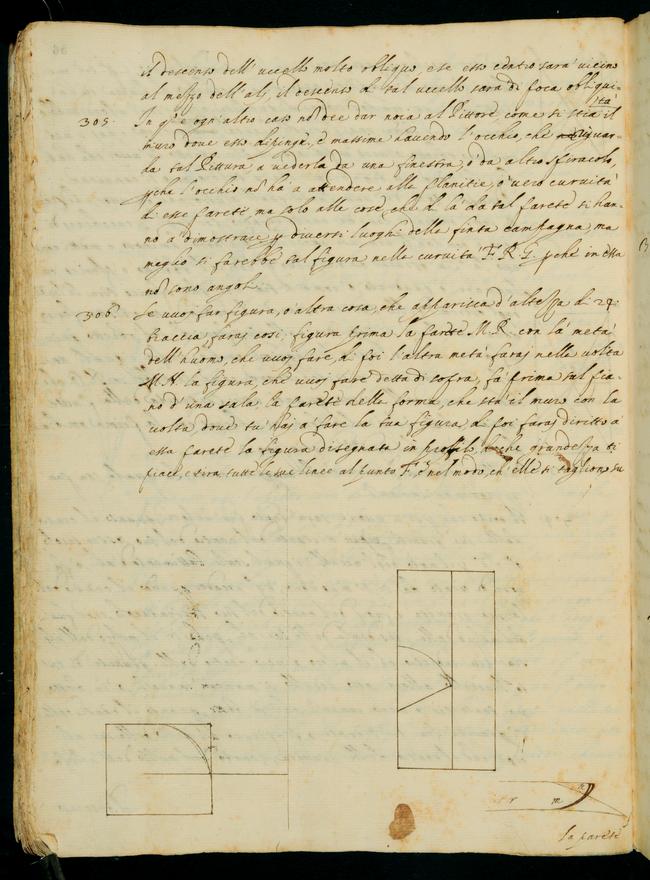 il descenso dell' uccello molto obliquo, e se esso contro sarà vicino
al mezzo dell' ali, il descenso di tal uccello sarà di poca obliqui-
ità
305. In qsto e ogn' altro caso nō dee dar noia al Pittore, come si stia il
muro dove esso dipinge, e massime havendo l'occhio, che riguar-
da tal Pittura a vederla da una finestra, o da altro spiracolo,
pche l'occhio nō ha a attendere alle planitie, o vero curvità
di esse pareti, ma solo alle cose, che di là da tal parete si han-
no a dimostrare p diversi luoghi della finta campagna, ma
meglio si farebbe tal figura nella curvità F. R. G. pche in essa
nō sono angoli.
306. Se vuoi far figura, o altra cosa, che apparisca d'altezza di 24
braccia, faraj così; figura prima la parete M. R. con la metà
dell' huomo, che vuoj fare, di poi l'altra metà faraj nella volta
M. H. la figura, che vuoj fare detta di sopra, fà prima sul pia-
no d' una sala la parete della forma, che stà il muro con la
volta, dove tu haj a fare la tua figura, di poi faraj dirietro a
essa parete la figura disegnata in di che grandezza ti
piace, e tira tutte le sue linee al punto F, e nel modo, ch' elle si tagliono su
r m n
la parete